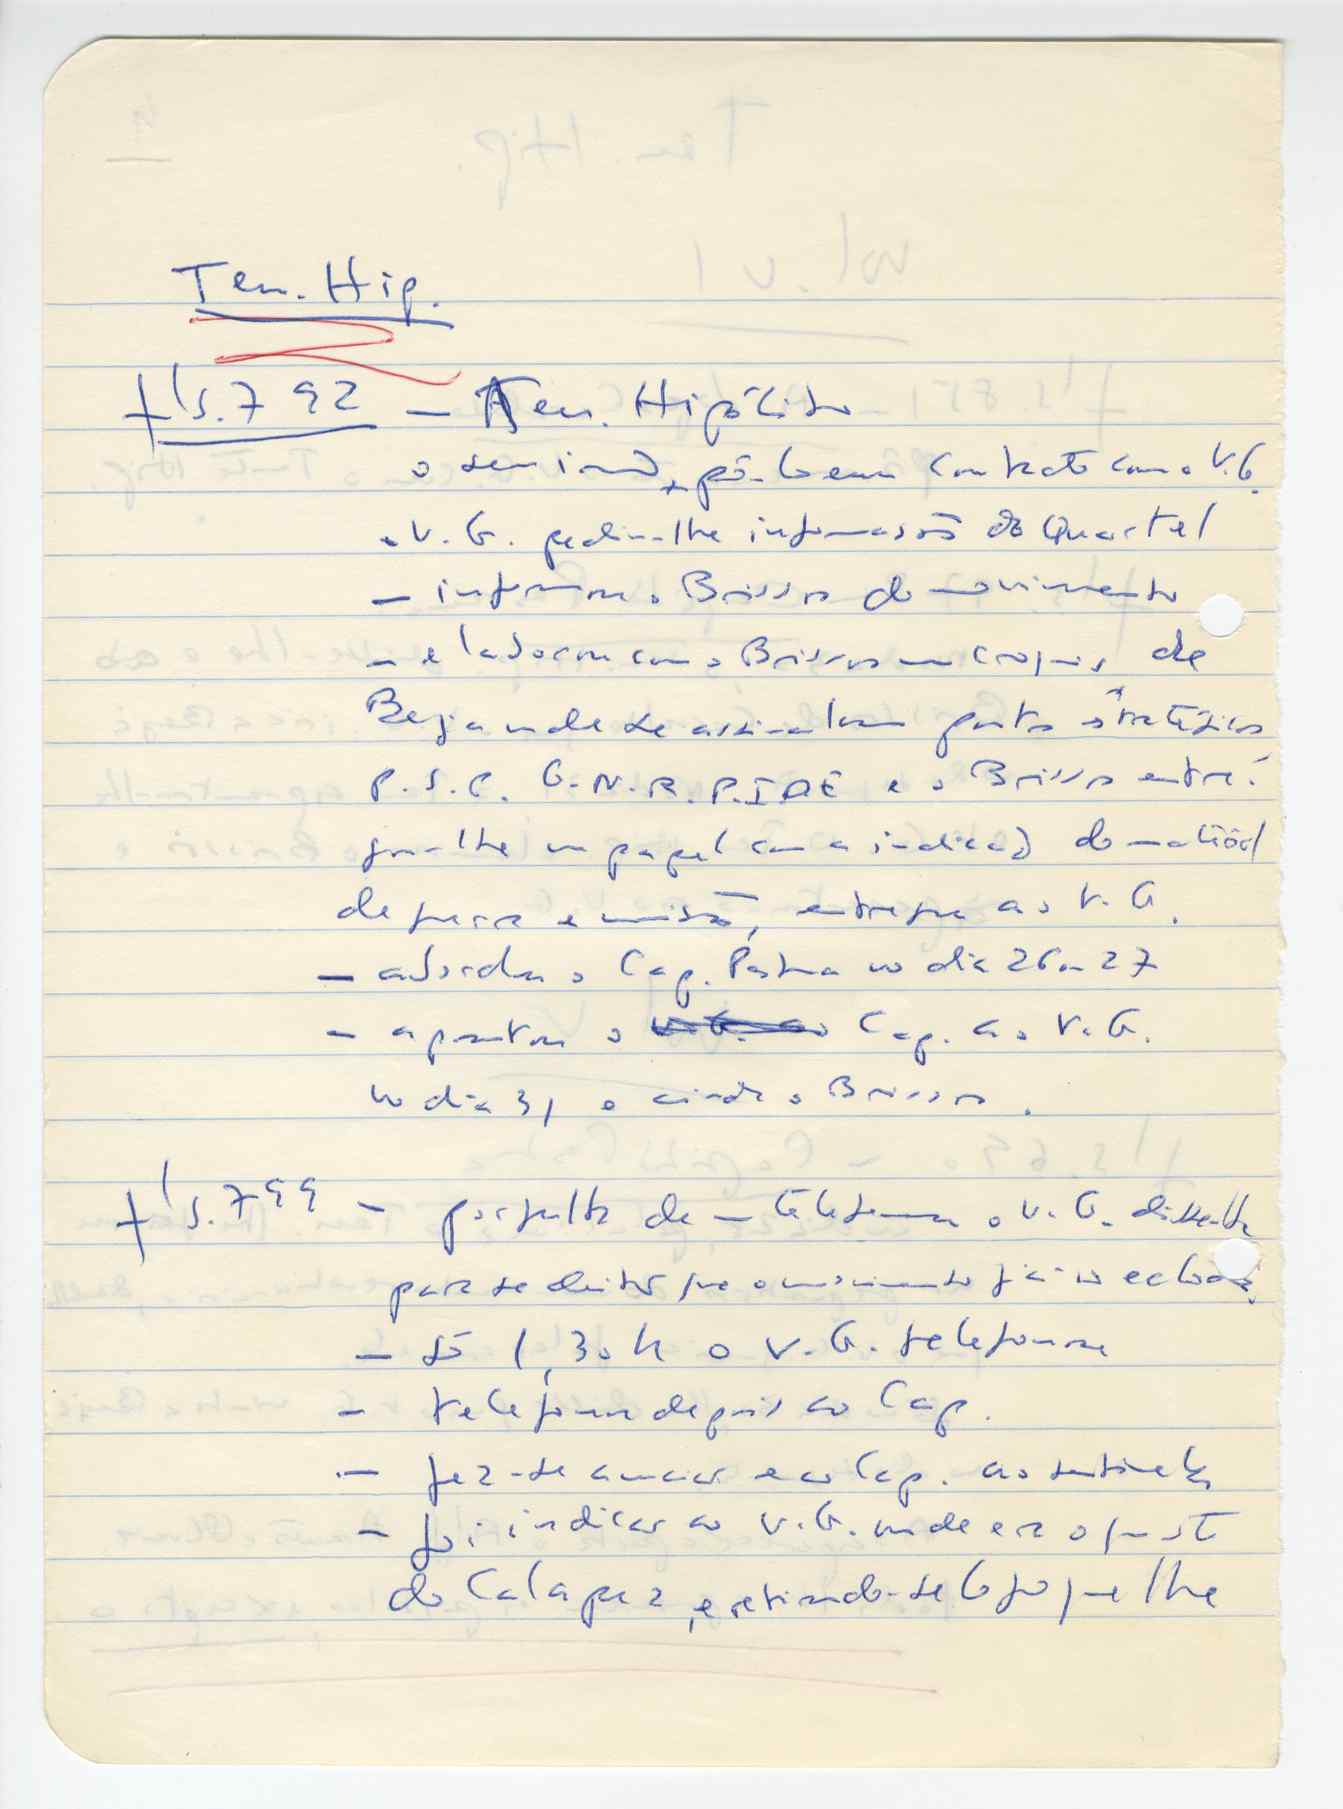 Ten. Hip.
fls. 792 — Ten. Hipólito
o seu irmão pô-lo em contacto com o V.G.
. V. G. pediu-lhe informações do Quartel
— informou o Brissos do movimento
— elaborou com o Brissos um croquis de
Beja onde se assinalam pontos estratégicos
P.S.P. G.N.R. P.I.D.E e o Brissos entre-
gou-lhe um papel com a indicação do material
de guerra e munições, entregue ao V. G.
— abordou o Cap. Pestana no dia 26 ou 27
— apresentou o Cap. ao V. G.
no dia 31 e ainda o Brissos.
fls. 799 — por falta de telefonema o V. G. disse-lhe
para se deitar que o movimento já não eclodia.
— só 1,30 h o V. G. telefonou
— telefonou depois ao Cap.
— fez-se anunciar e ao Cap. ao sentinela
— foi indicar ao V. G. onde era o quarto
do Calapez, e retirando-se logo que lhe